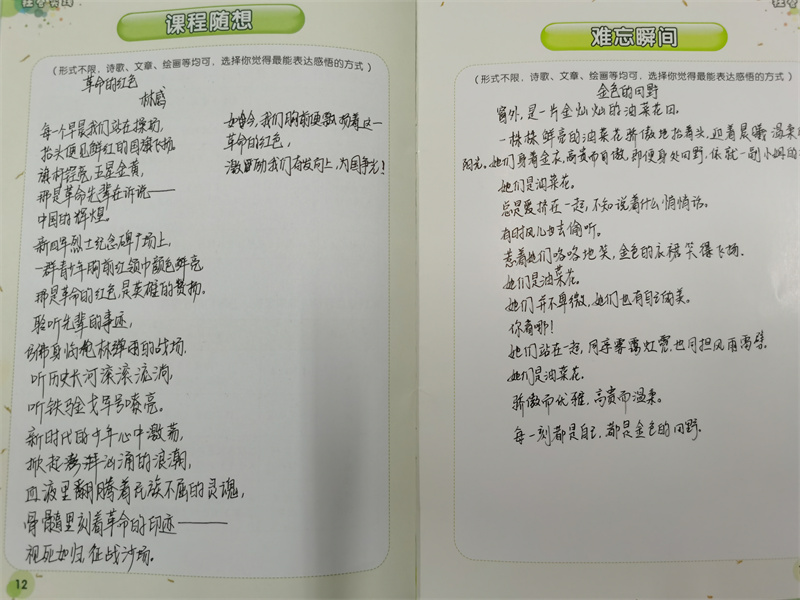 课程随想
(形式不限,诗歌、文章、绘画等均可,选择你觉得最能表达感悟的方式)
革命的红色
每个早晨我们站在操场,
抬头便见鲜红的国旗飞扬,
旗杆挺亮,五星金黄,
那是革命先辈在诉说——
中国的辉煌。
新四军烈士纪念碑广场上,
一群青少年胸前红领巾颜色鲜亮
那是革命的红色,是英雄的赞扬。
聆听先辈的事迹,
仿佛身临枪林弹雨的战场。
听历史长河滚滚流淌,
听铁马金戈军号嘹亮。
新时代的少年心中激荡,
掀起澎湃汹涌的浪潮,
血液里翻腾着民族不屈的灵魂,
骨髓里刻着革命的印迹——
视死如归征战沙场。
如今,我们胸前便飘动着这一
革命的红色,
激励我们奋发向上,为国争光!
12
难忘瞬间
(形式不限,诗歌、文章、绘画等均可,选择你觉得最能表达感悟的方式)
金色的田野
窗外,是一片金灿灿的油菜花田。
一株株鲜亮的油菜花骄傲地抬着头,迎着晨曦 温柔
阳光。她们身着金衣,高贵而自傲,即便身处田野,依就一副小姐的
她们是油菜花。
总是爱挤在一起,不知说着什么悄悄话。
有时风儿也去偷听。
惹着她们咯咯地笑,金色的衣裙笑得飞扬。
她们是油菜花。
她们并不卑微,她们也有自己的美。
你看哪!
她们站在一起,同享雾霭虹霓,也同担风雨雷霹。
她们是油菜花。
骄傲而优雅,高贵而温柔。
每一刻都是自己,都是金色的田野。